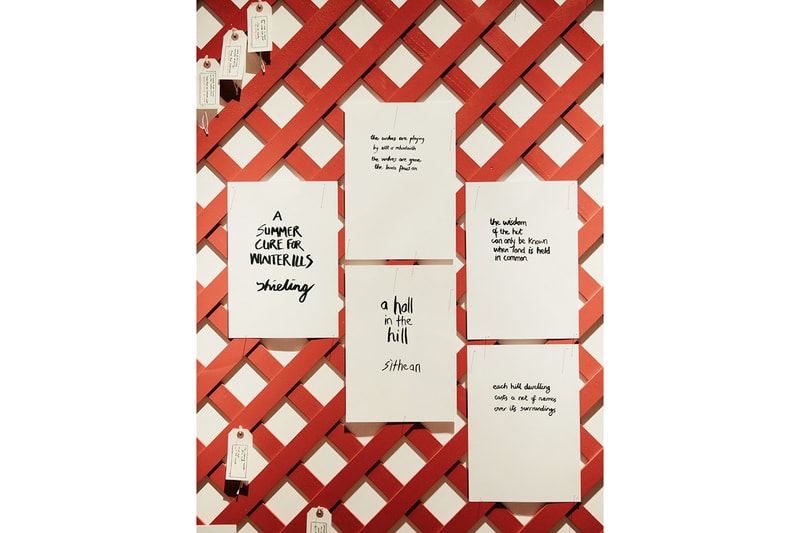 A
SUMMER
CURE FOR
WINTER ILLS
shieling
the wolves are playing
by
the wolves are gone
the burn flows on
a hall
in the
hill
sithean
the wisdom
of the hut
can only be known
when land is held
in common
each hill dwelling
casts a net of names
over its surroundings